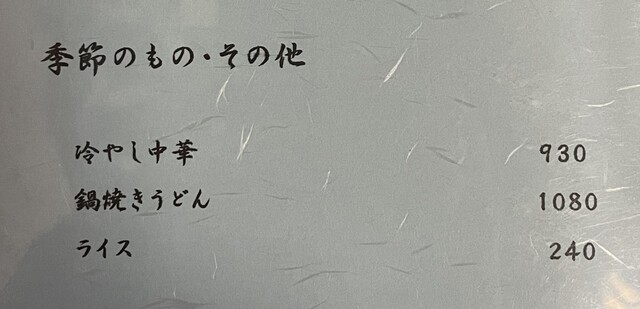 季節のもの・その他
冷やし中華 930
鍋焼きうどん 1080
ライス 240